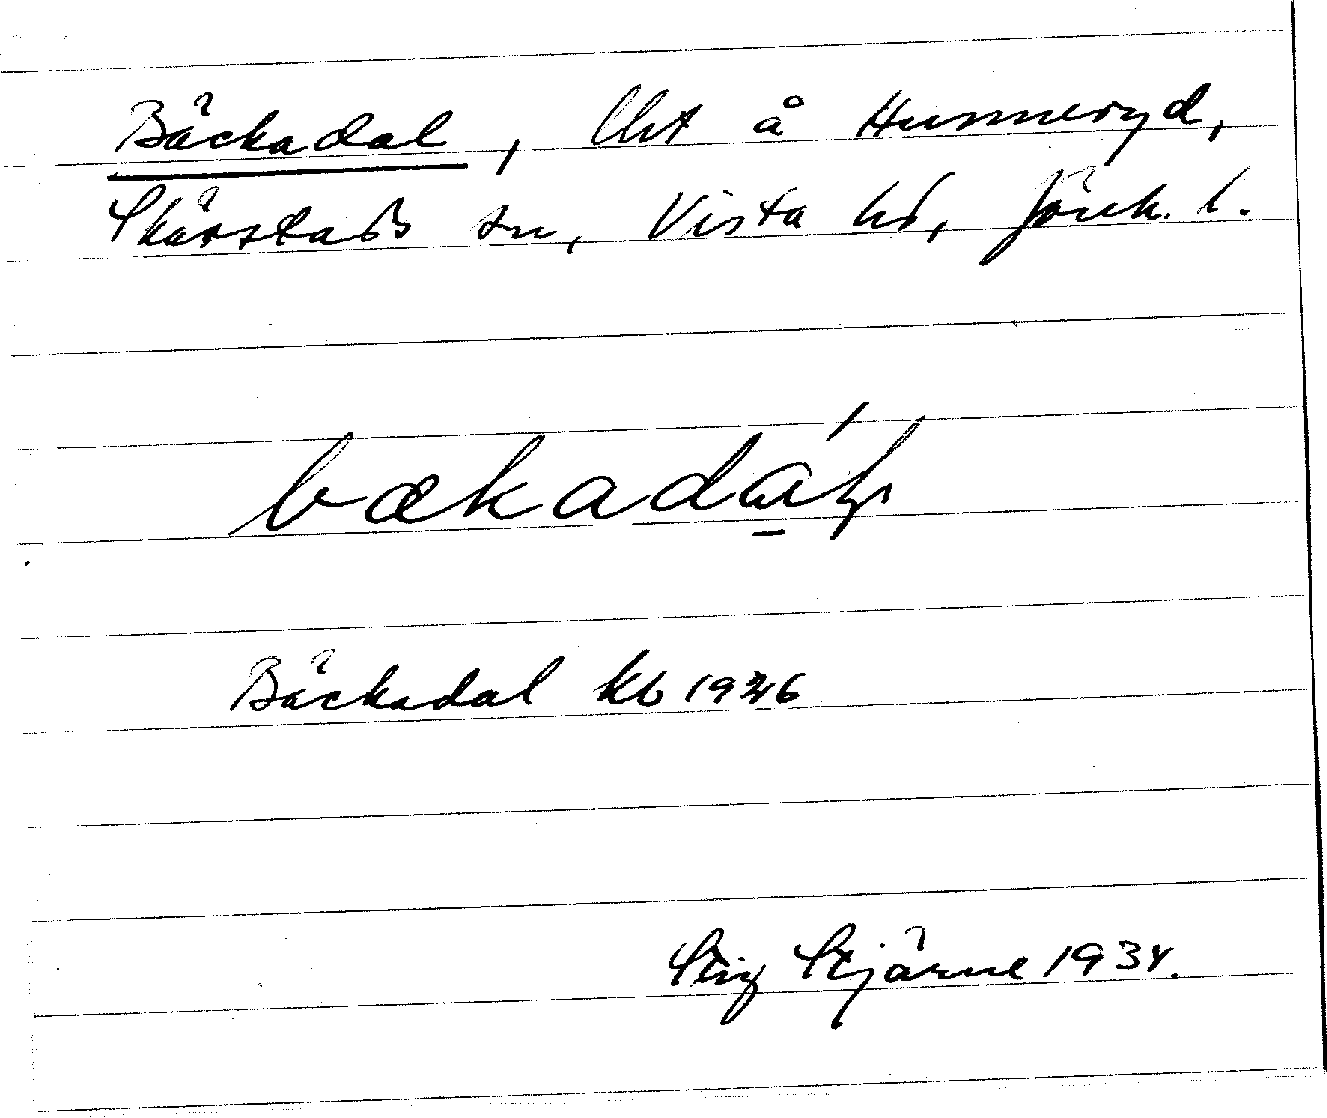 Bäckadal, lht å Hunneryd,
Skärstads sn, Vista hd, Jönk. l.
bækadál
Bäckadal kb 1946
Stig Stjärne 1934.